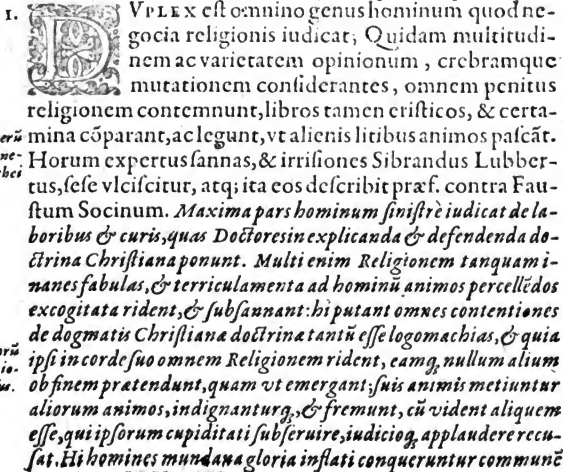 1. DVPLEX est omnino genus hominum quod ne-
gocia religionis iudicat; Quidam multitudi-
nem ac varietatem opinionum, crebramque
mutationem considerantes, omnem penitus
religionem contemnunt, libros tamen eristicos, & certa-
mina cõparant, ac legunt, vt alienis litibus animos pascãt.
Horum expertus sannas, & irrisiones Sibrandus Lubber-
tus, sese vlciscitur, atq; ita eos describit præf. contra Fau-
stum Socinum. Maxima pars hominum sinistrè iudicat de la-
boribus & curis, quas Doctores in explicanda & defendenda do-
ctrina Christiana ponunt. Multi enim Religionem tanquam i-
nanes fabulas, & terriculamenta ad hominũ animos percellẽdos
excogitata rident, & subsannant: hi putant omnes contentiones
de dogmatis Christianæ doctrinæ tantũ esse logomachias, & quia
ipsi in corde suo omnem Religionem rident, eamq; nullum alium
ob finem prætendunt, quam vt emergant; suis animis metiuntur
aliorum animos, indignanturq;, & fremunt, cũ vident aliquem
esse, qui ipsorum cupiditati subseruire, iudicioq; applaudere recu-
sat. Hi homines mundana gloria inflati conqueruntur communẽ